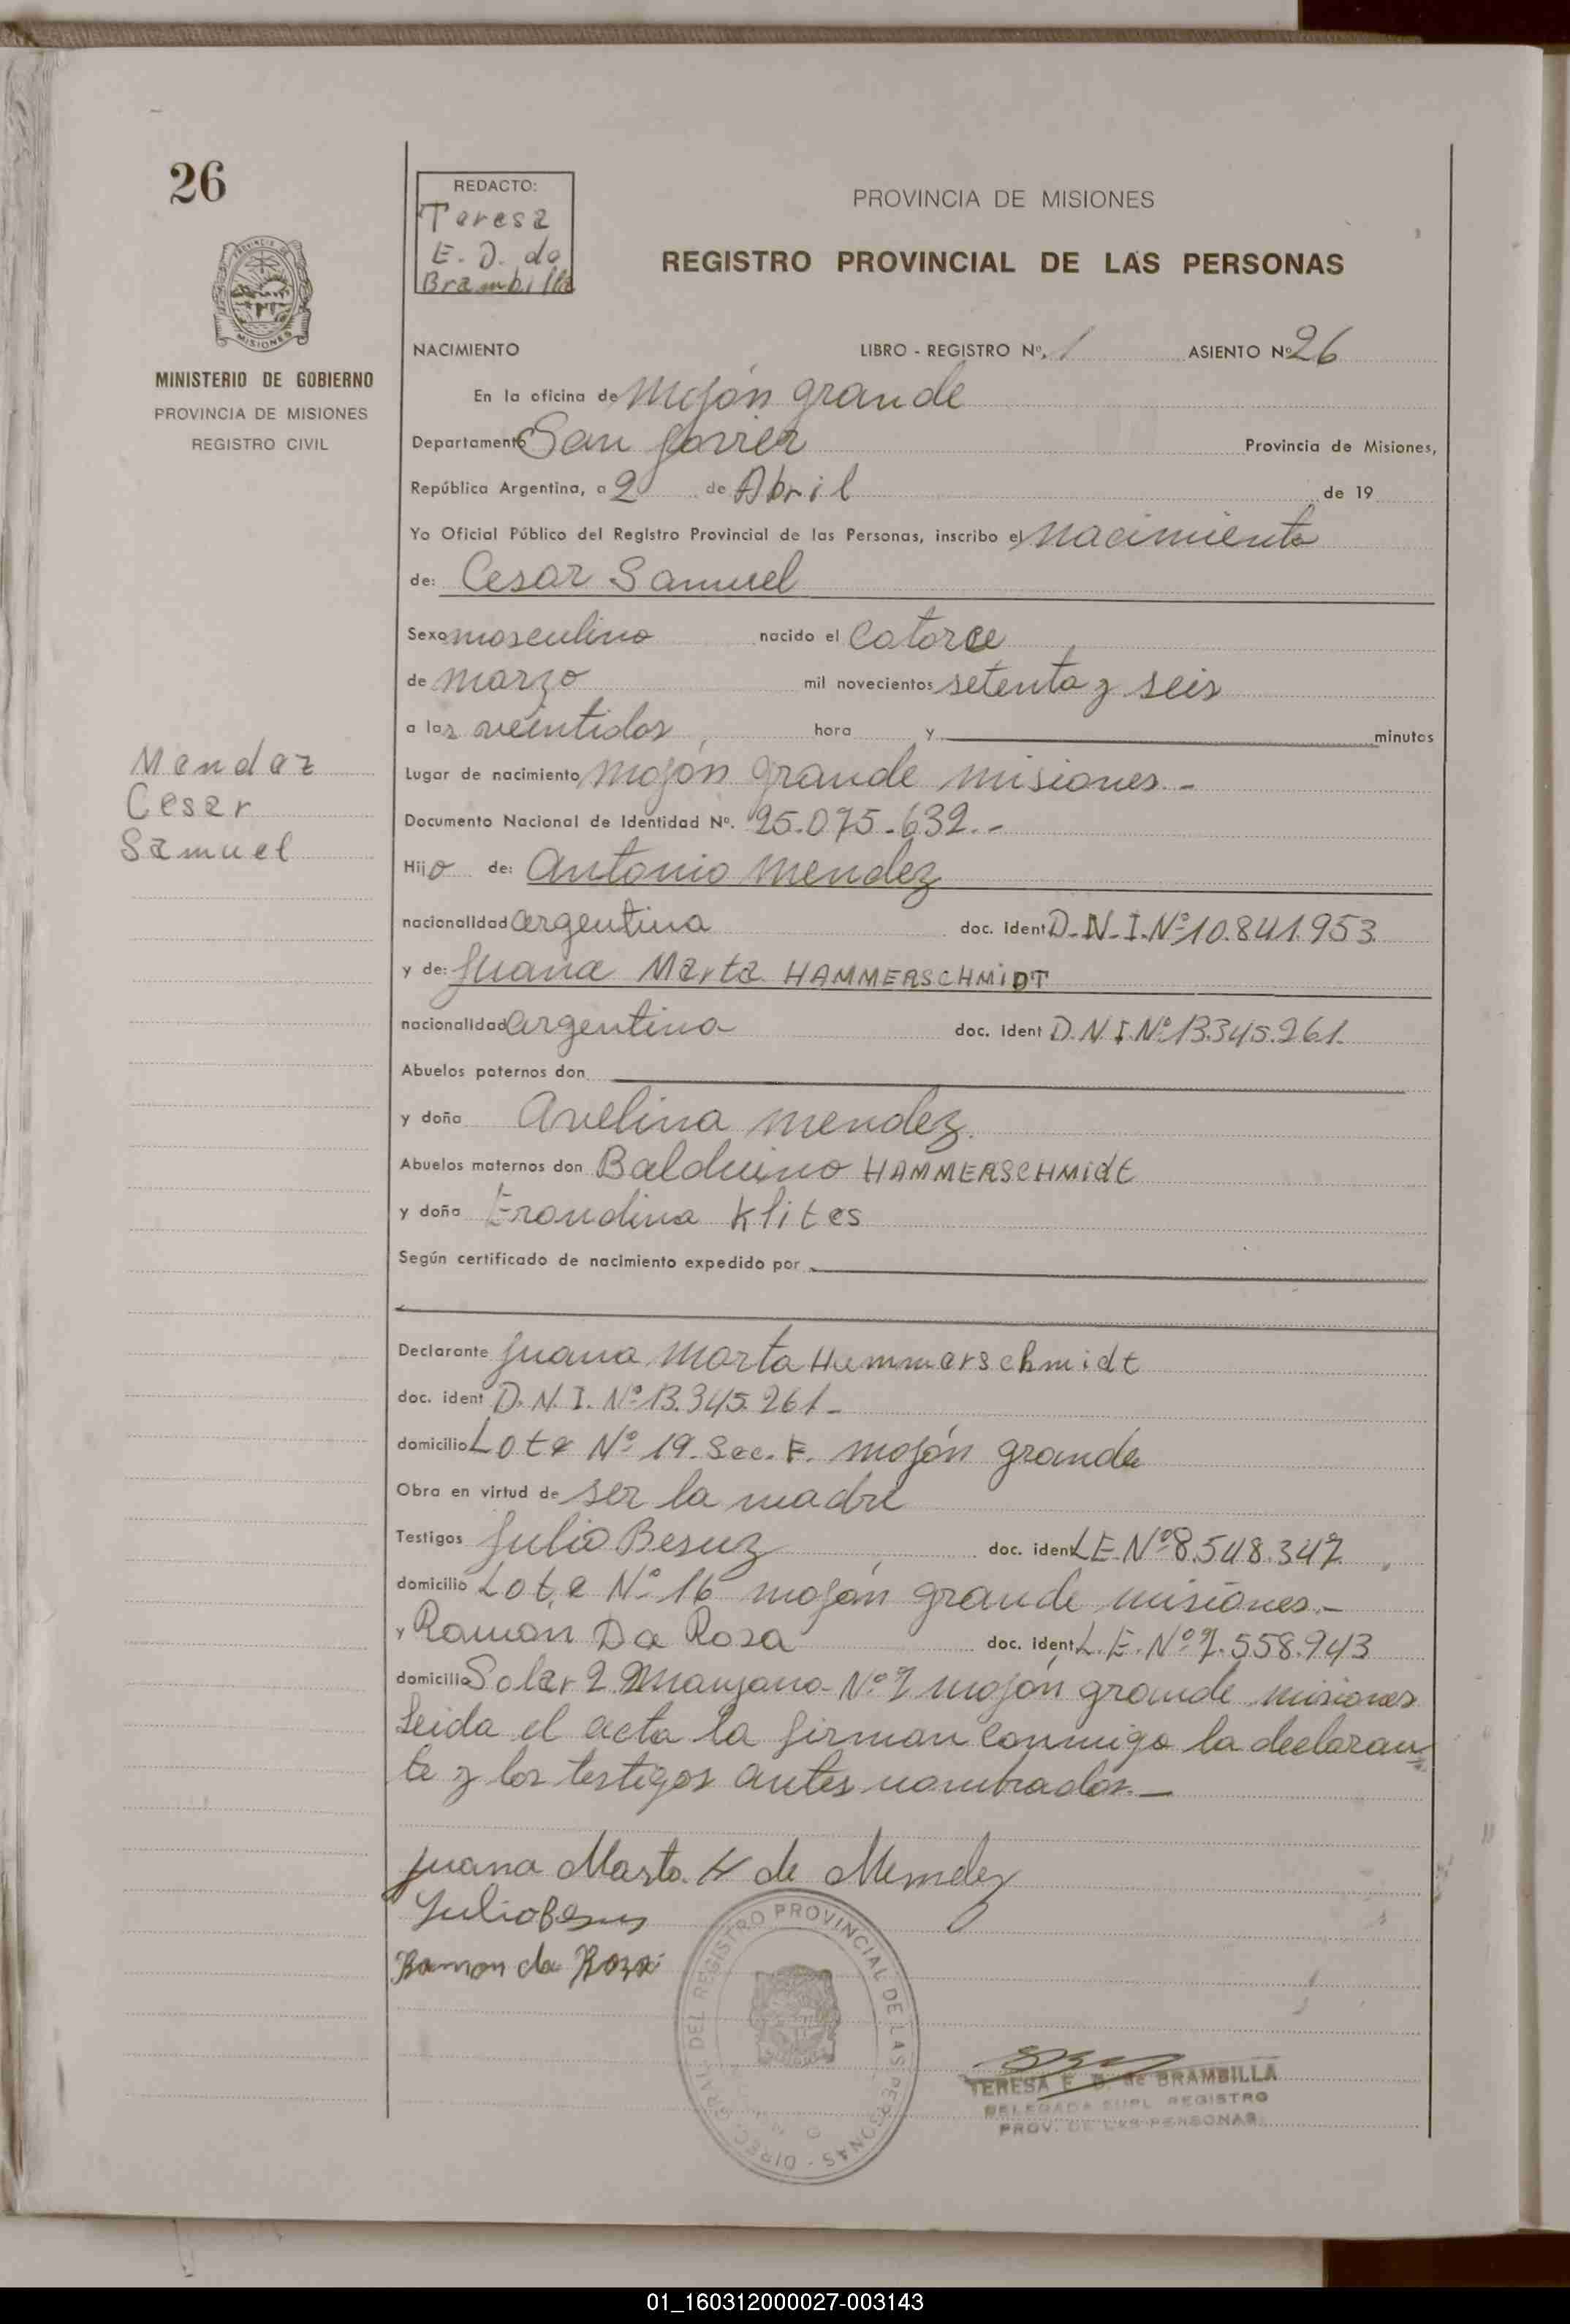 26
REDACTO:
Teresa
E. D. de
Brambilla
PROVINCIA DE MISIONES
REGISTRO PROVINCIAL DE LAS PERSONAS
MISIONES
MINISTERIO DE GOBIERNO
PROVINCIA DE MISIONES
REGISTRO CIVIL
NACIMIENTO LIBRO - REGISTRO Nº. 1 ASIENTO Nº 26
En la oficina de Mojón grande
Departamento San Javier Provincia de Misiones,
República Argentina, a 2 de Abril de 19
Yo Oficial Público del Registro Provincial de las Personas, inscribo el nacimiento
de: Cesar Samuel
Sexo masculino nacido el catorce
de marzo mil novecientos setenta y seis
a las veintidos hora y minutos
Mendez
Cesar
Samuel
Lugar de nacimiento mojón grande misiones.-
Documento Nacional de Identidad Nº. 25.075.632.-
Hijo de: Antonio Mendez
nacionalidad argentina doc. ident D.N.I.Nº 10.841.953.
y de: Juana Marta HAMMERSCHMIDT
nacionalidad argentina doc. ident D.N.I.Nº 13.345.261.
Abuelos paternos don
y doña Avelina Mendez.
Abuelos maternos don Balduino HAMMERSCHMidt
y doña Erondina Klites
Según certificado de nacimiento expedido por
Declarante Juana Marta Hammerschmidt
doc. ident D.N.I. Nº 13.345.261-
domicilio Lote Nº 19. Sec. F. mojón grande
Obra en virtud de ser la madre
Testigos Julio Besuz doc. ident L.E. Nº 8.548.347
domicilio Lote Nº 16 mojón grande misiones.-
y Ramon Da Rosa doc. ident L.E. Nº 7.558.943
domicilio Solar 2 Manzana Nº 7 mojón grande misiones
Leida el acta la firman conmigo la declaran=
te y los testigos antes nombrados.-
Juana Marta H de Mendez
Julio Besus
Ramon da Roza
DIREC. GRAL. DEL REGISTRO PROVINCIAL DE LAS PERSONAS -
TERESA E. D. de BRAMBILLA
DELEGADA SUPL REGISTRO
PROV. DE LAS PERSONAS
01_160312000027-003143